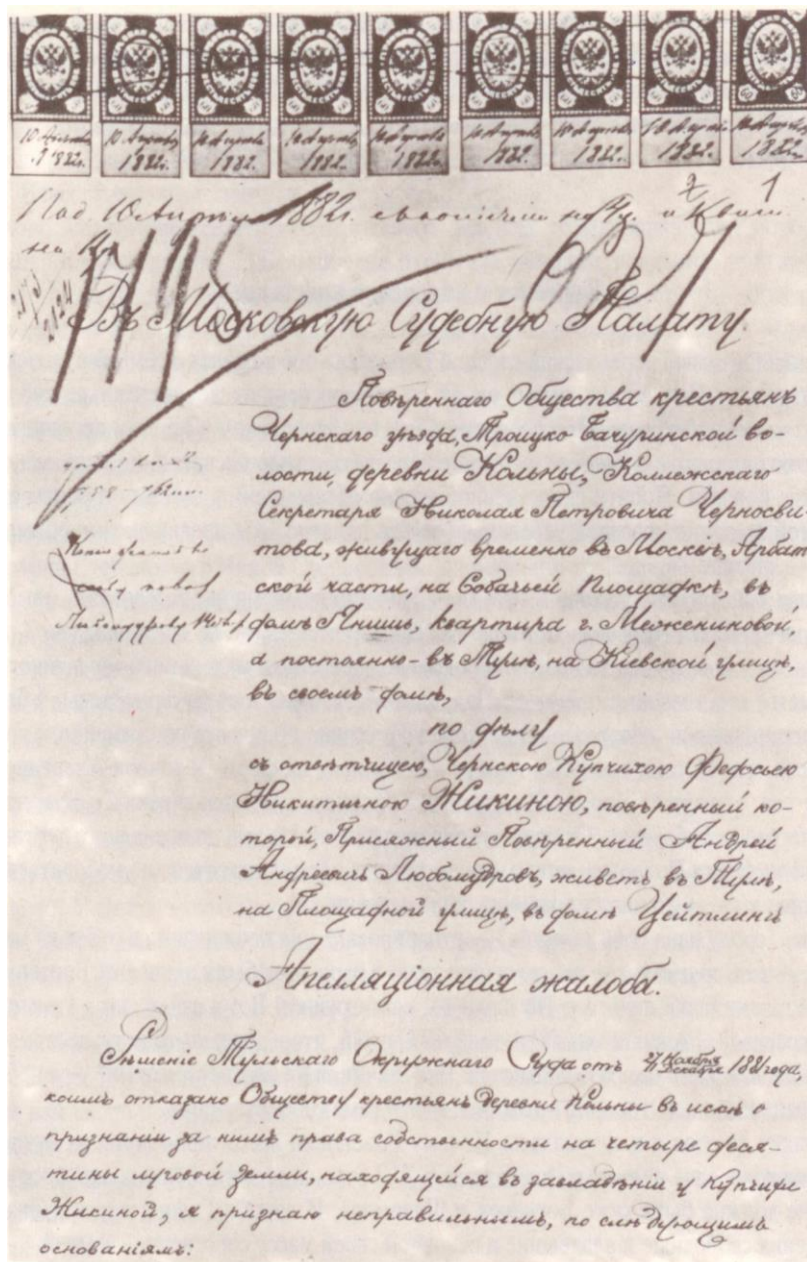 10 Апрѣля 1882г. 10 Апрѣля 1882. 10 Апрѣля 1882. 10 Апрѣля 1882. 10 Апрѣля 1882. 10 Апрѣля 1882. 10 Апрѣля 1882. 10 Апрѣля 1882. 10 Апрѣля 1882.
1
Под. 10 Апрѣля 1882г. съ копіями
Въ Московскую Судебную Палату
Повѣреннаго Общества крестьянъ
Чернскаго уѣзда, Троицко Бачуринской во-
лости, деревни Кольны, Коллежскаго
Секретаря Николая Петровича Черносви-
това, живущаго временно въ Москвѣ, Арбат
ской части, на Собачьей Площадкѣ, въ
домѣ Янишъ, квартира г. Меженинковой,
а постоянно - въ Тулѣ, на Кіевской улицѣ,
въ своемъ домѣ,
по дѣлу
съ отвѣтчицею, Чернскою Купчихою Федосьею
Никитичною Жикиною, повѣренный ко-
торой, Присяжный Повѣренный Андрей
Андреевичъ Любомудровъ, живетъ въ Тулѣ,
на Площадной улицѣ, въ домѣ Цейтлинъ
Апелляціонная жалоба.
Рѣшеніе Тульскаго Окружнаго Суда отъ 27 Ноября 11 Декабря 1881 года,
коимъ отказано Обществу крестьянъ деревни Кольны въ искѣ о
признаніи за нимъ права собственности на четыре деся-
тины луговой земли, находящейся въ завладѣніи у Купчихи
Жикиной, я признаю неправильнымъ, по слѣдующимъ
основаніямъ: